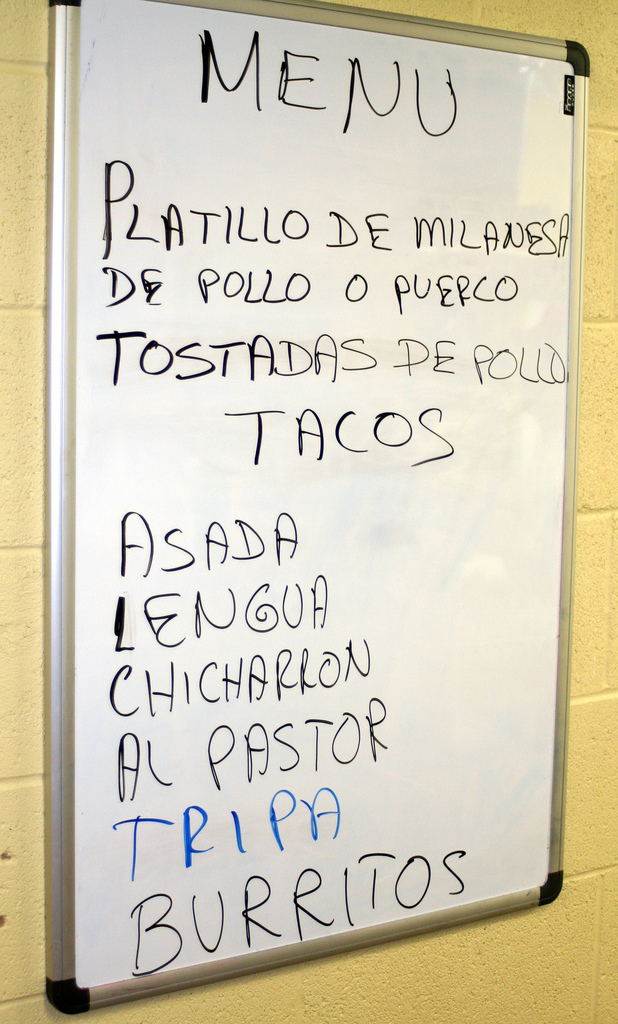 MENU
PLATILLO DE MILANESA
DE POLLO O PUERCO
TOSTADAS DE POLLO
TACOS
ASADA
LENGUA
CHICHARRON
AL PASTOR
TRIPA
BURRITOS